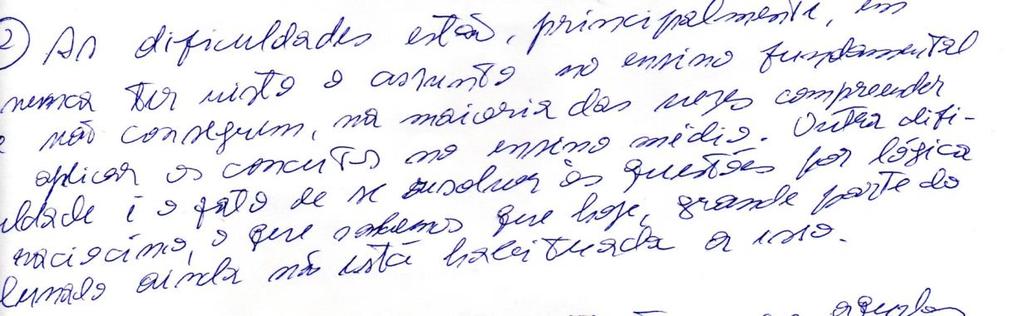 2) As dificuldades estão, principalmente, em
nunca ter visto o assunto no ensino fundamental
e não conseguem, na maioria das vezes compreender
aplicar os conceitos no ensino médio. Outra difi-
uldade é o fato de se resolver as questões por lógica
raciocínio, o que sabemos que hoje, grande parte do
lunado ainda não está habituada a isso.